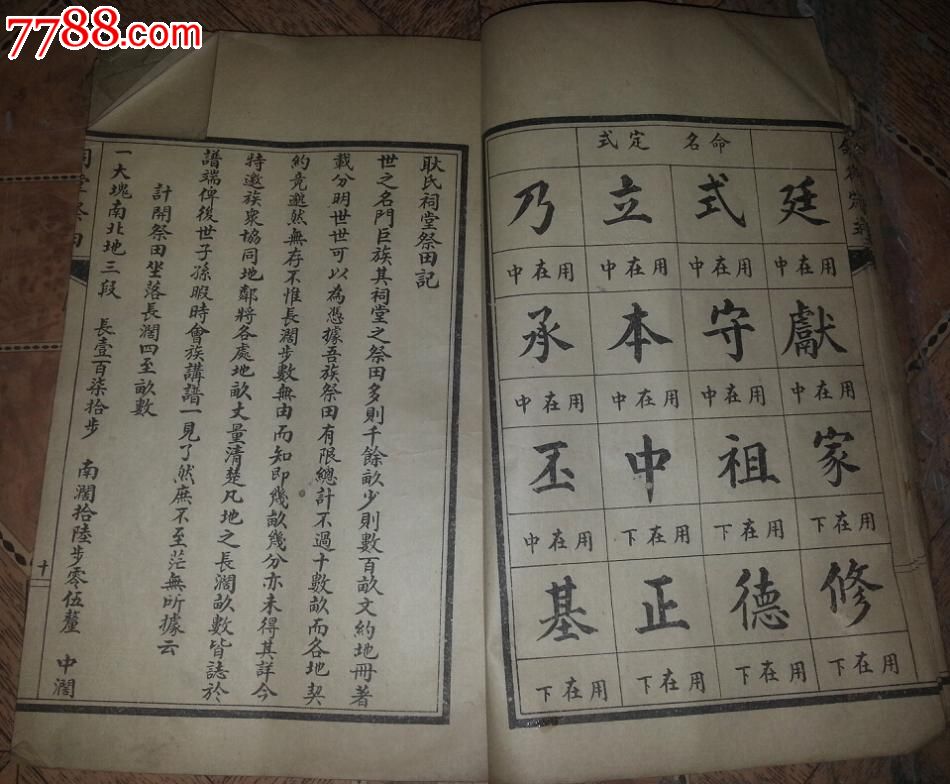 7788.com
命名定式
廷 式 立 乃
用在中 用在中 用在中 用在中
獻 守 本 承
用在中 用在中 用在中 用在中
家 祖 中 丕
用在下 用在下 用在下 用在中
修 德 正 基
用在下 用在下 用在下 用在下
耿氏祠堂祭田記
世之名門巨族其祠堂之祭田多則千餘畝少則數百畝文約地冊著
載分明世世可以為憑據吾族祭田有限總計不過十數畝而各地契
約竟邈然無存不惟長濶步數無由而知即幾畝幾分亦未得其詳今
特邀族衆協同地鄰將各處地畝丈量清楚凡地之長濶畝數皆誌於
譜端俾後世子孫暇時會族講譜一見了然庶不至茫無所據云
計開祭田坐落長濶四至畝數
一大塊南北地三段 長壹百柒拾步 南濶拾陸步零伍釐 中濶
祠堂祭田 十